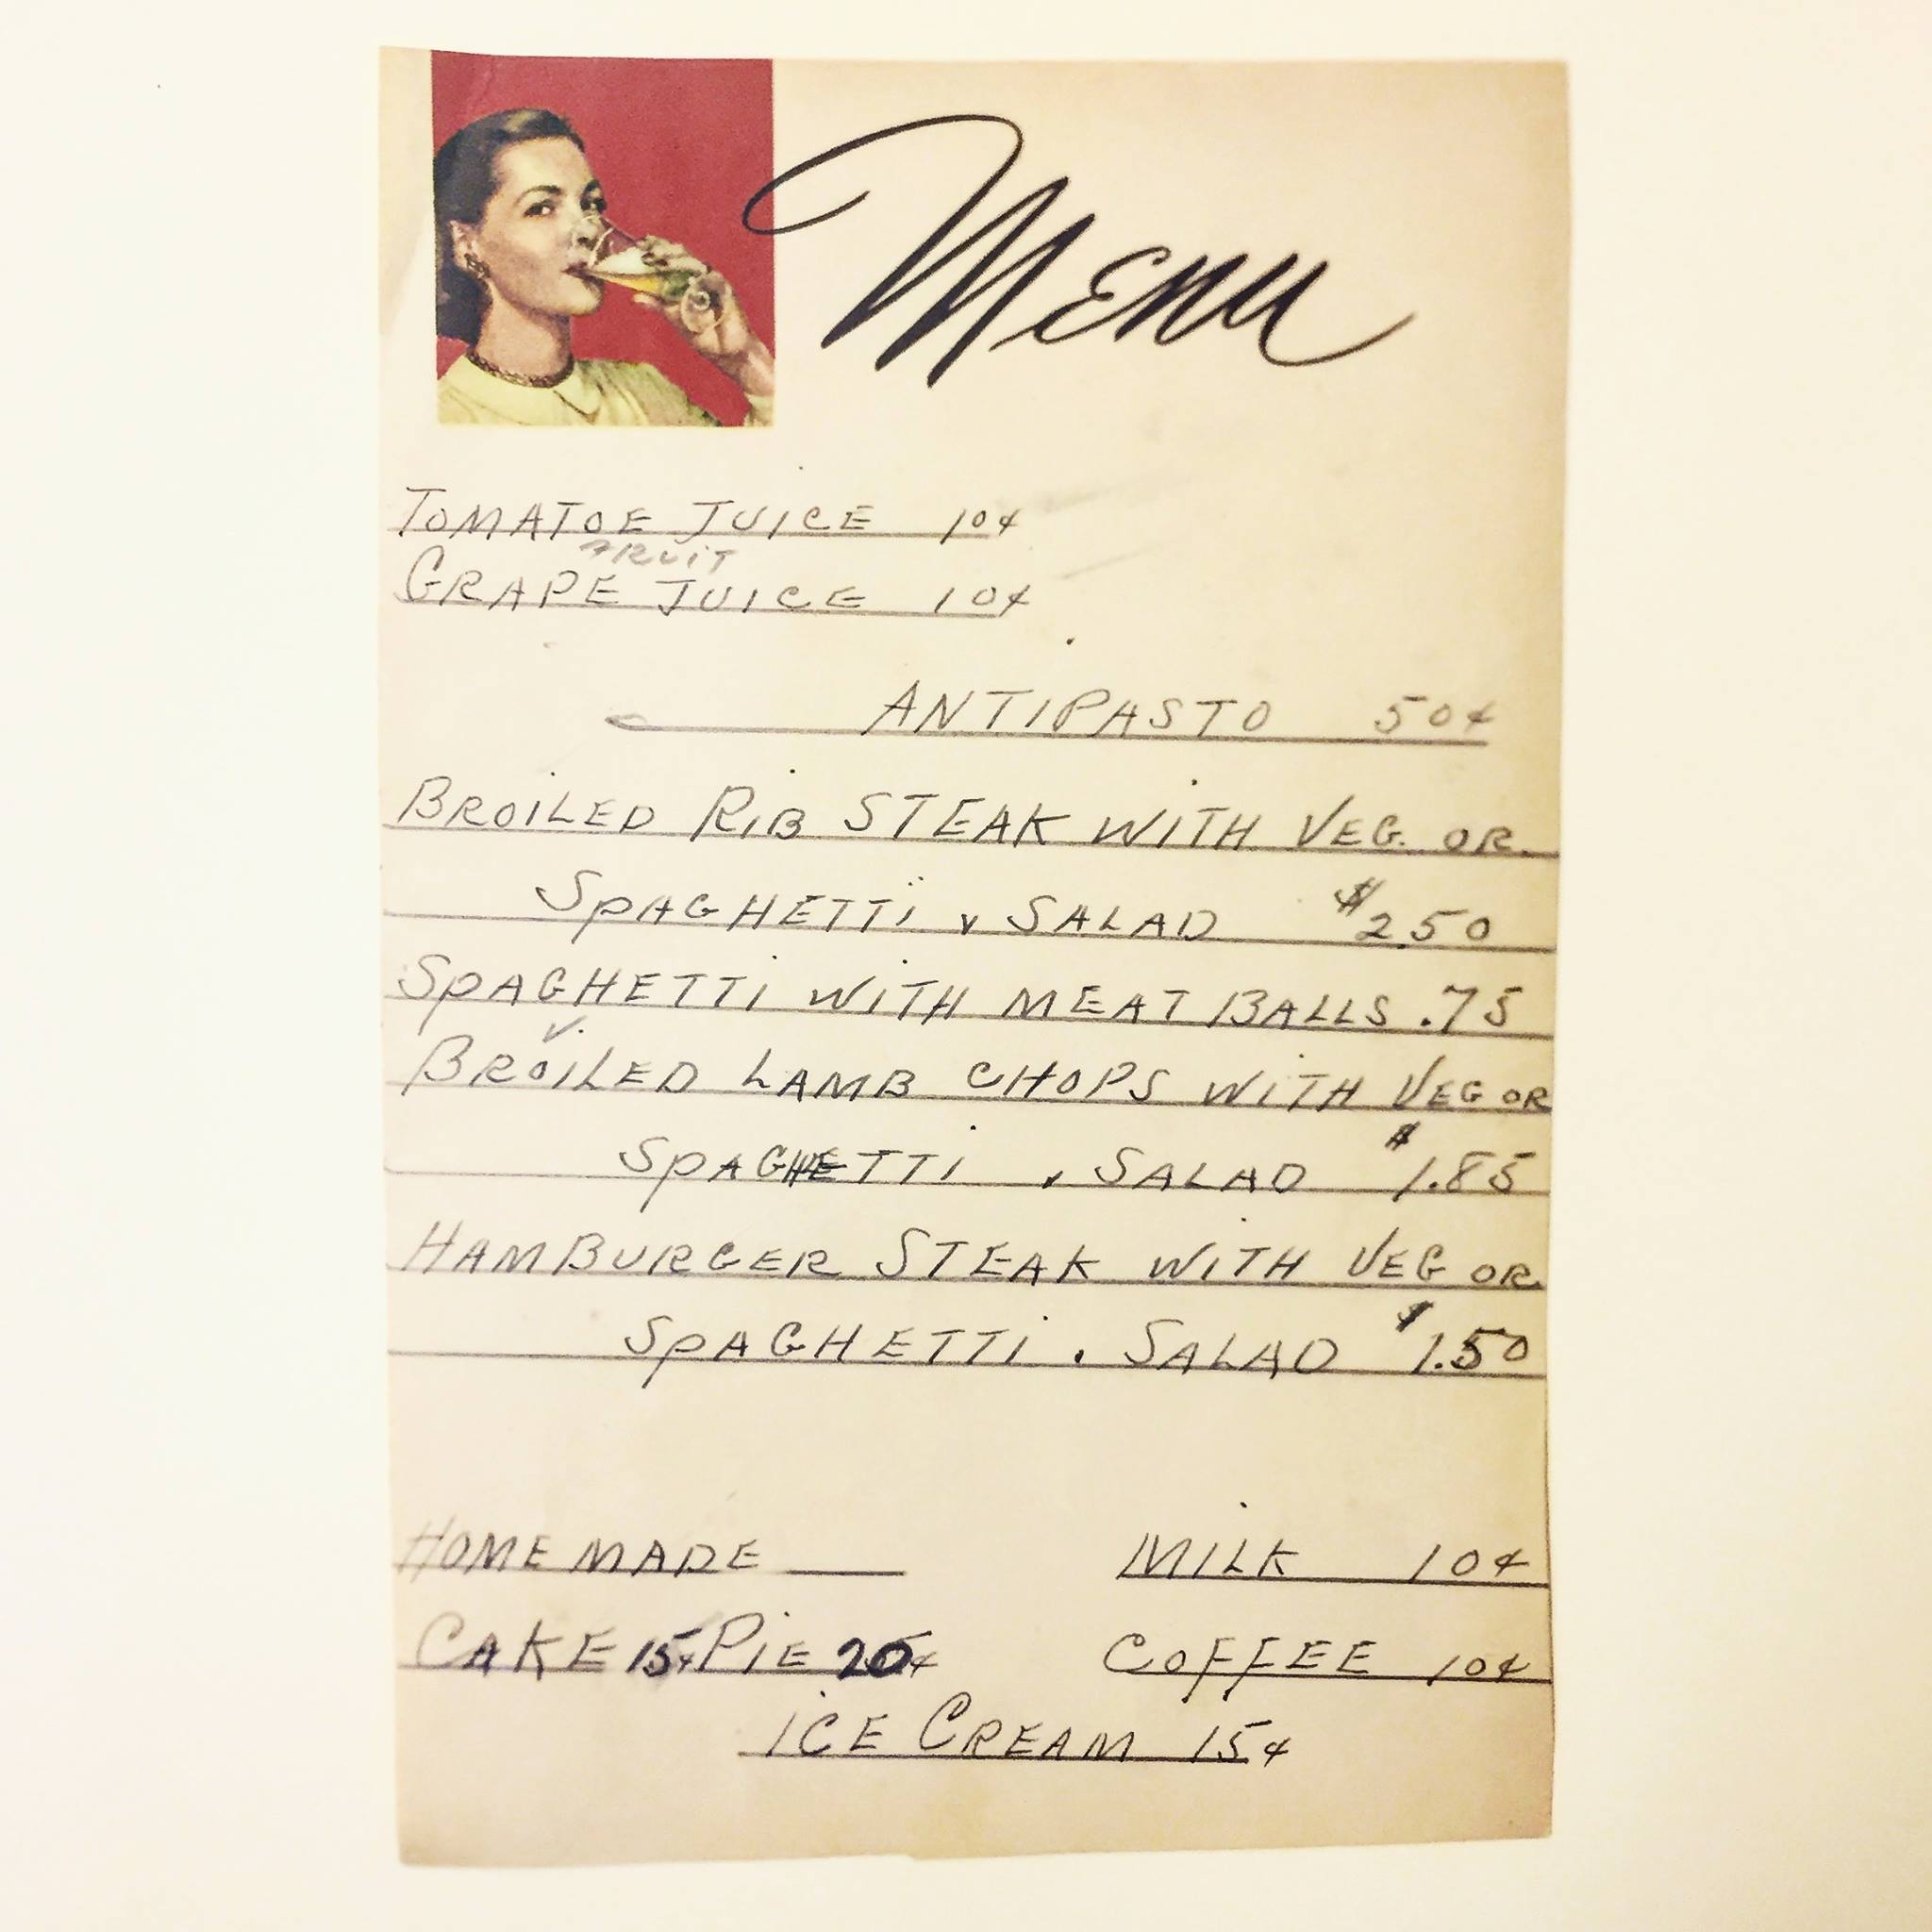 Menu
TOMATOE JUICE 10¢
FRUIT
GRAPE JUICE 10¢
ANTIPASTO 50¢
BROILED RIB STEAK WITH VEG. OR
SPAGHETTI, SALAD $2.50
SPAGHETTI WITH MEAT BALLS .75
BROILED LAMB CHOPS WITH VEG OR
SPAGHETTI, SALAD $1.85
HAMBURGER STEAK WITH VEG OR
SPAGHETTI. SALAD $1.50
HOME MADE
MILK 10¢
CAKE 15¢ PIE 20¢
COFFEE 10¢
ICE CREAM 15¢